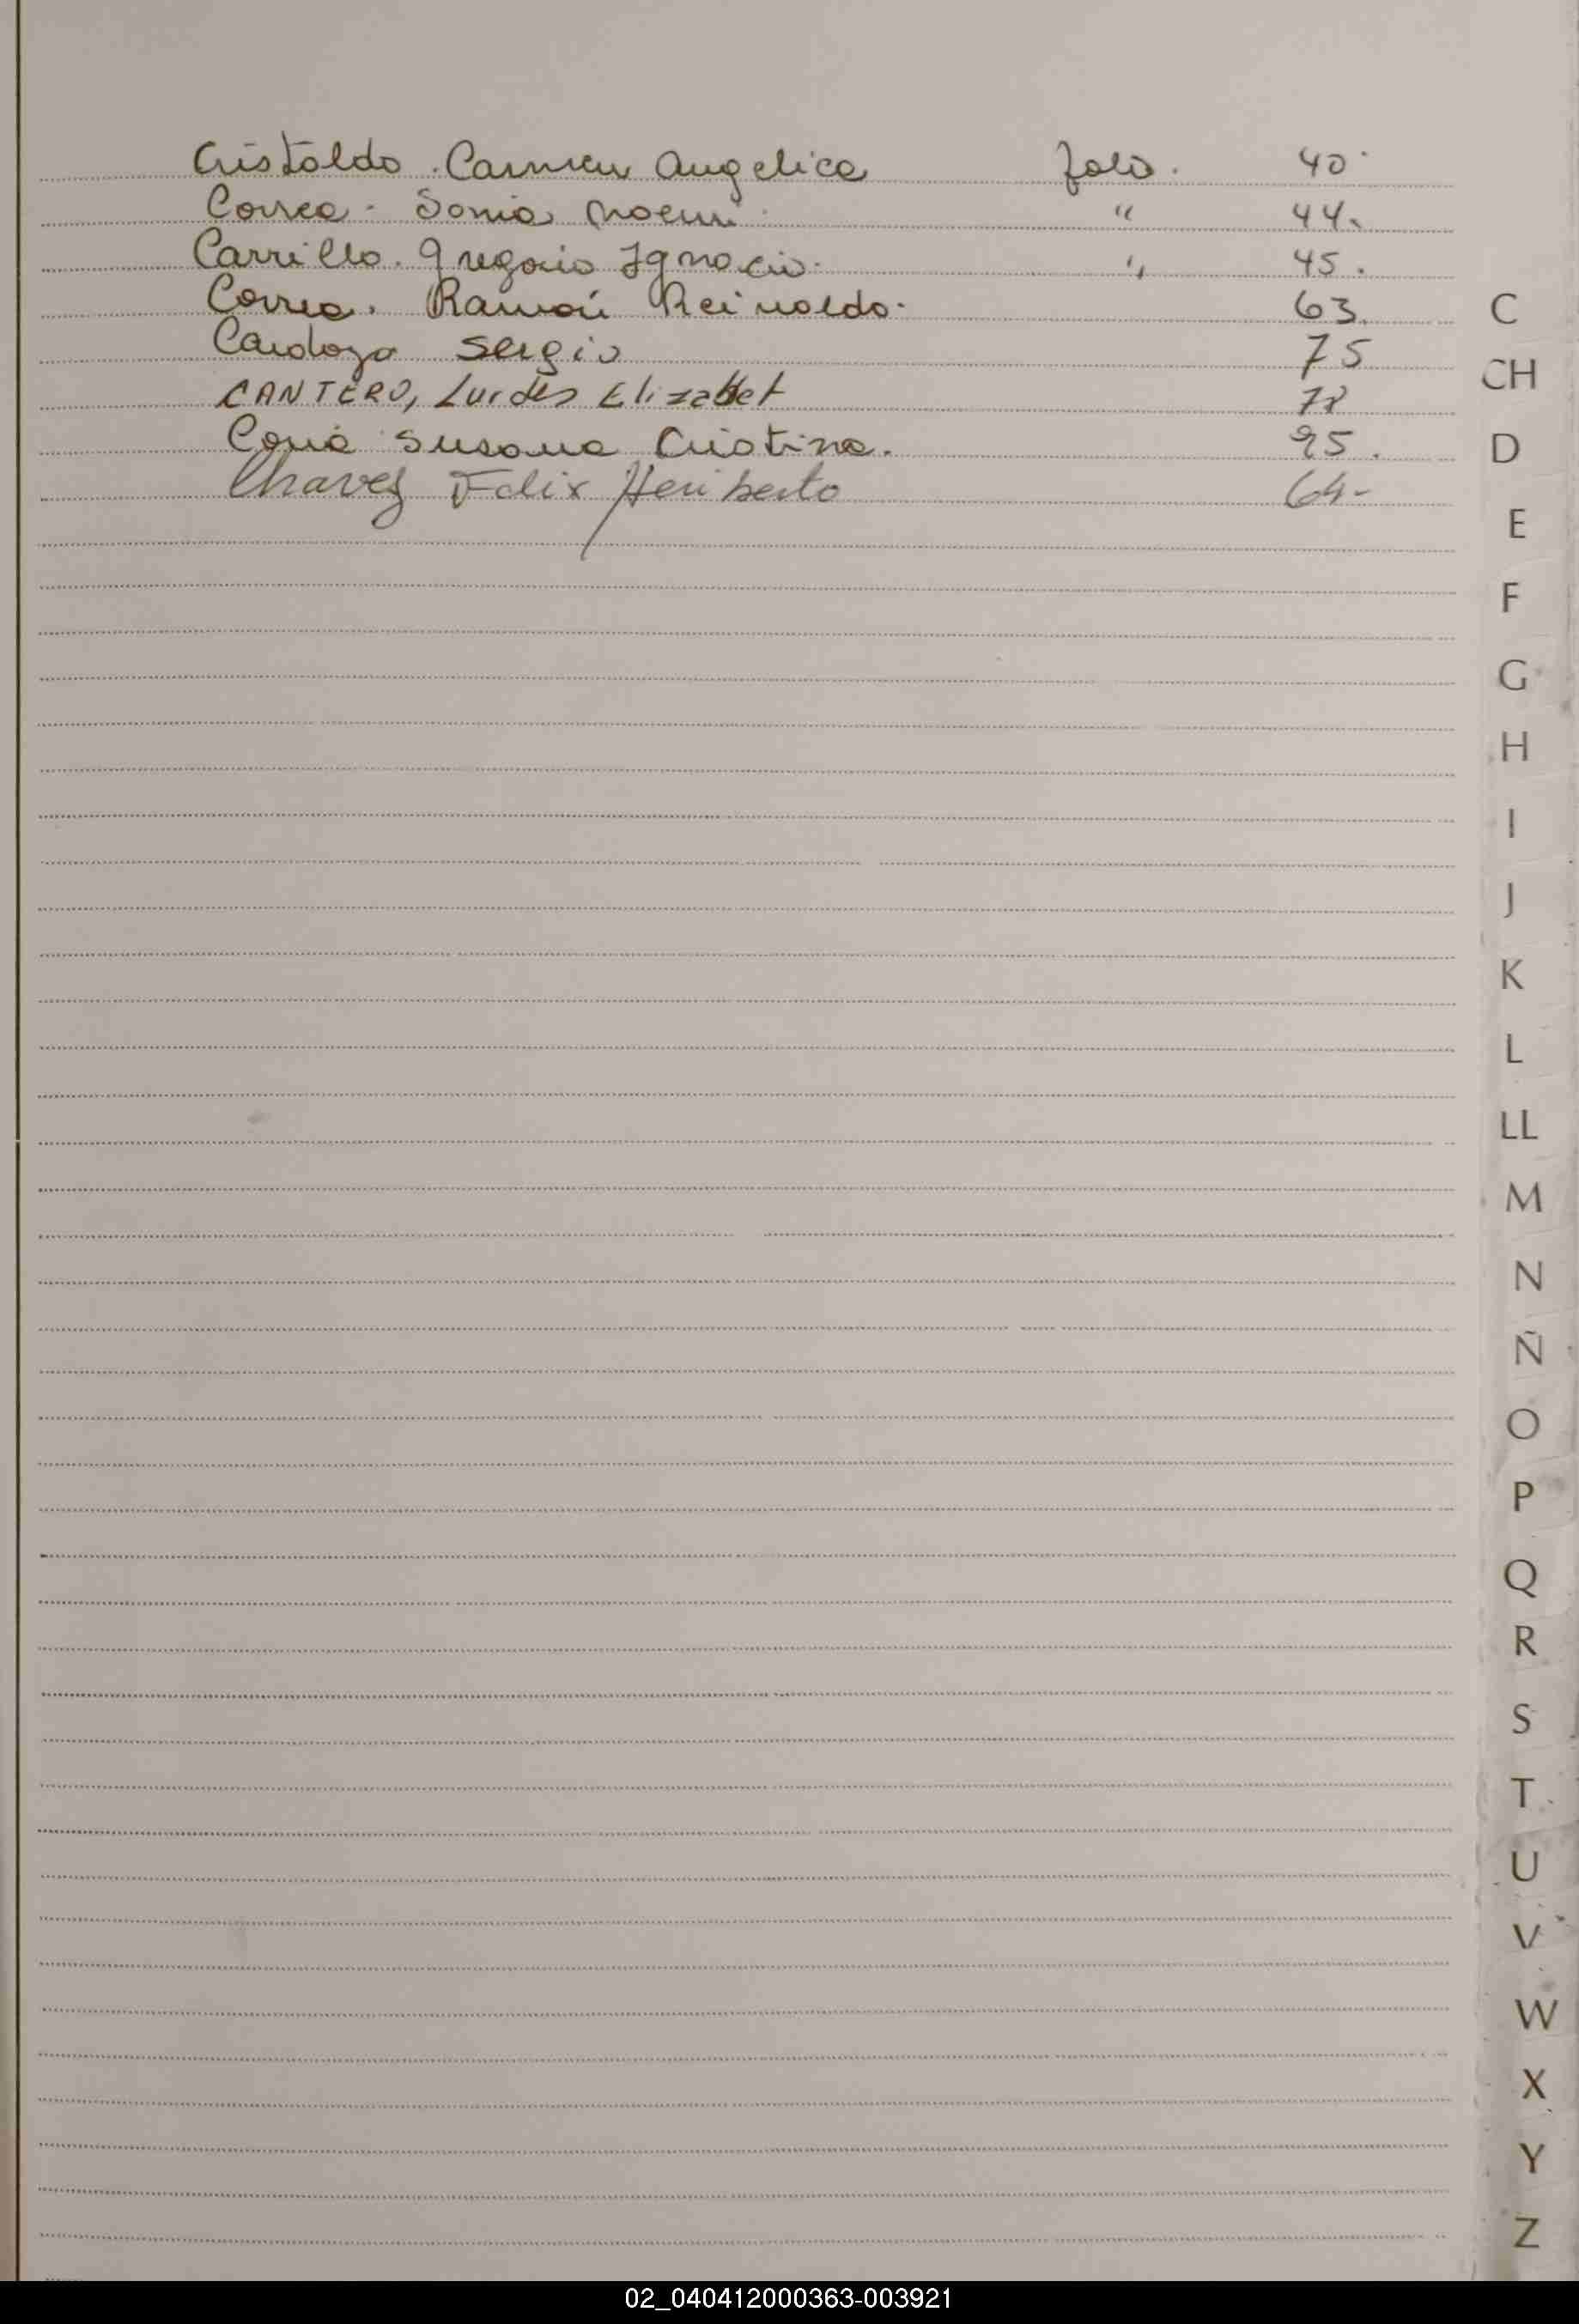 Cristaldo . Carmen Angelica folio . 40
Correa - Sonia Noemi . " 44.
Carrillo . Gregorio Ignacio . " 45 .
Correa . Ramón Reinaldo . 63.
Cardozo Sergio 75
CANTERO, Lurdes Elizabet 78
Coria Susana Cristina . 95 .
Chavez Felix Heriberto 64-
C
CH
D
E
F
G
H
I
J
K
L
LL
M
N
Ñ
O
P
Q
R
S
T
U
V
W
X
Y
Z
02_040412000363-003921